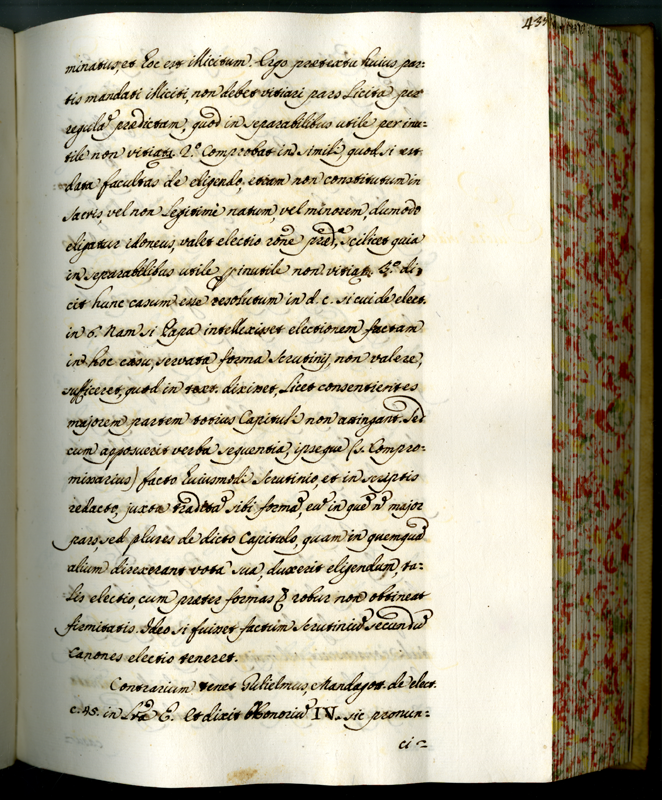 minatus, et hoc est illicitum. Ergo praetextu huius par-
tis mandati illiciti, non debet vitiari pars licita per
regulã predictam, quod in separabilibus utile per inu-
tile non vitiatr. 2.º Comprobat in simili, quod si est
data facultas de eligendo, etiam non constitutum in
Sacris, vel non legitimè natum, vel minorem, dumodo
eligatur idoneus, valet electio rõne pred.ª, scilicet quia
in separabilibus utile p inutile non vitiatr. 4.º di-
cit hunc casum esse resolutum in d. c. si cui de elect.
in 6. Nam si Papa intellexisset electionem factam
in hoc casu, servata forma Scrutinij, non valere,
sufficeret, quod in text. dixisset, licet consentientes
majorem partem totius Capituli non attingant. Sed
cum apposuerit verba sequentia, ipseque (s. Compro-
missarius) facto huiusmodi Scrutinio, et in scriptis
redacto, juxta traditã sibi formã, eũ in quẽ nõ major
pars, sed plures de dicto Capitulo, quam in quemquã
alium direxerant vota sua, duxerit eligendum, ta-
lis electio, cum praeter formas robur non obtineat
firmitatis. Ideo si fuisset factum Scrutiniũ secundũ
Canones electio teneret.
Contrarium tenet Gulielmus, Mandagott. de elect.
c. 45. in Lrã E. Et dixit Honoriũ IV. sic pronun-
ci-